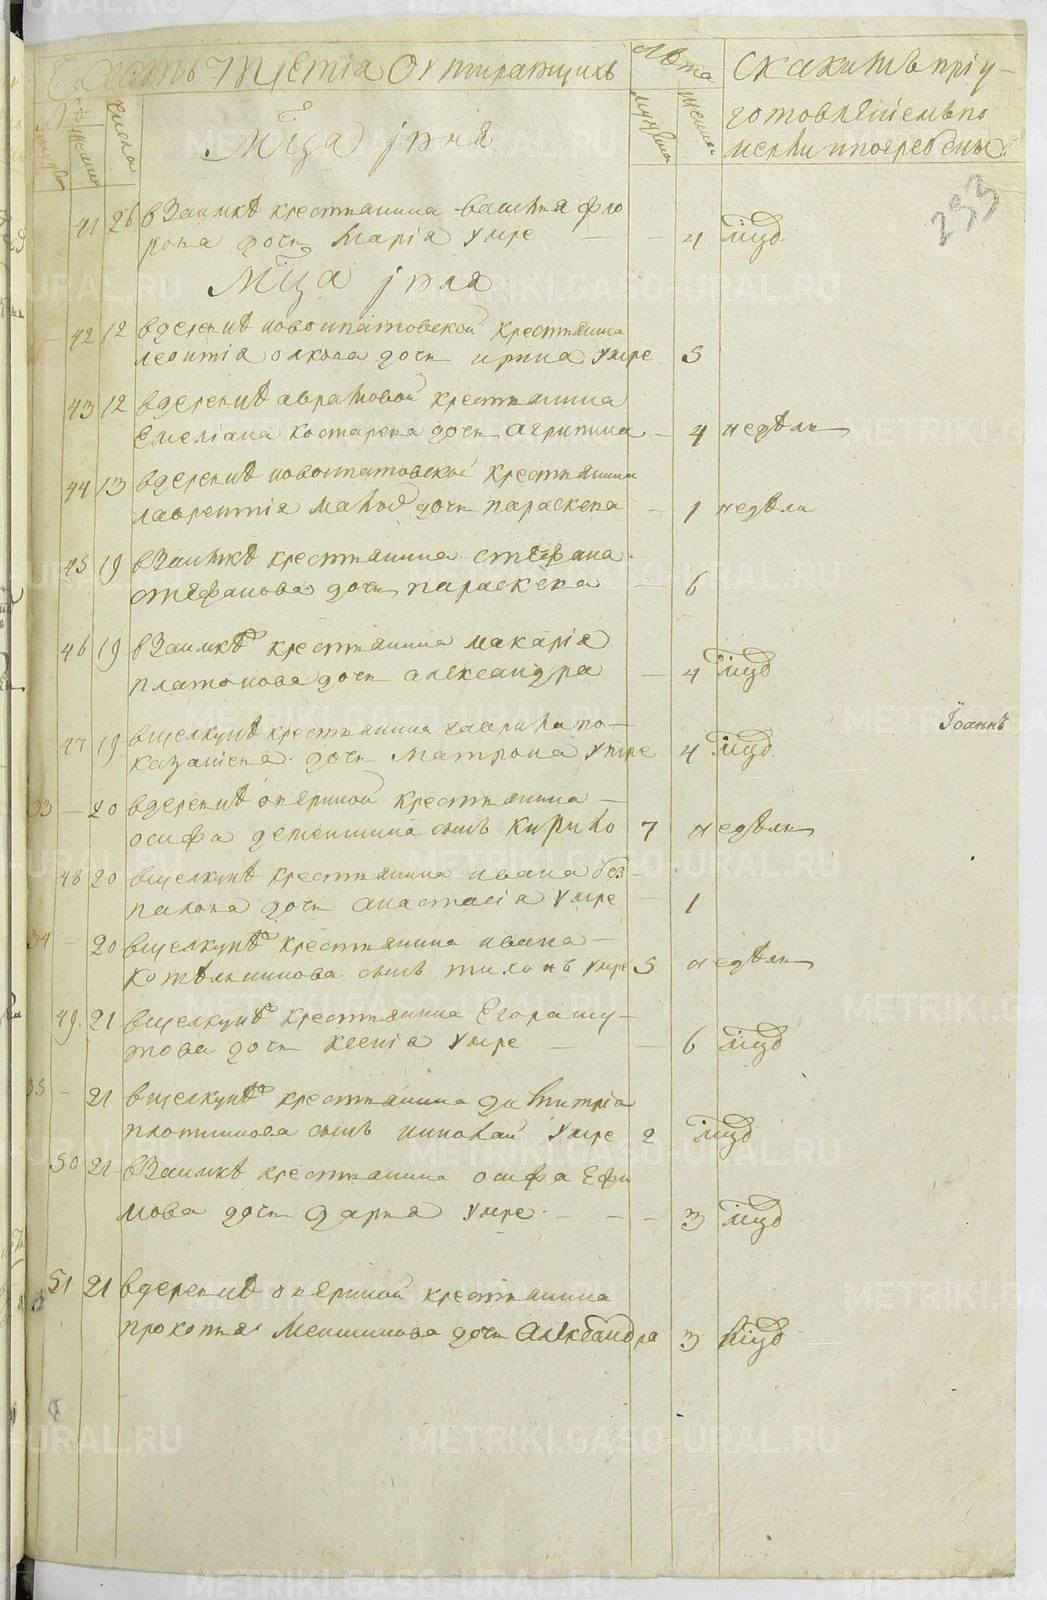 Часть третіа О умирающихъ
Лѣта
Скакимъ пріу-
готовлѣніемъ по
мерли и погребены
Числа
женска
Мѣца іюня
233
41 26 в Заимкѣ крестьянина васильа фло
рова дочь Марія умре — 4 мцд
Мѣца іюля
42 12 в деревнѣ новоипатовской крестьянина
леонтіа волкова дочь ирина умре 5
43 12 в деревнѣ абрамовой крестьянина
Емеліана костарева дочь агрипина — 4 недѣли
44 13 в деревнѣ новоипатовской крестьянина
лаврентіа дочь параскева — 1 недѣли
45 19 в Заимкѣ крестьянина стефана
стефанова дочь параскева — 6
46 19 в Заимкѣ крестьянина макаріа
платонова дочь александра — 4 мцд
47 19 вщелкунѣ крестьянина гаврила по-
дочь матрона умре 4 мцд
Іоаннъ
33 — 20 в деревнѣ крестьянина —
осифа деменшина сынъ Кирило 7 недѣли
48 20 вщелкунѣ крестьянина ивана без-
палова дочь анастасіа умре — 1
34 — 20 вщелкунѣ крестьянина ивана —
котѣлникова сынъ тихонъ умре 5 недѣли
49 21 вщелкунѣ крестьянина Егора шу-
това дочь ксеніа умре — — 6 мцд
35 — 21 вщелкунѣ крестьянина димитріа
плотникова сынъ николай умре 2 мцд
50 21 в Заимкѣ крестьянина осифа Ефи
мова дочь дарья умре — — — 3 мцд
51 21 в деревнѣ крестьянина
прокопья Меншикова дочь Александра 3 мцд
METRIKI.GASO-URAL.RU